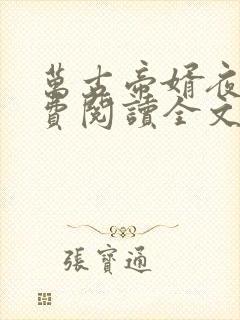 萬古帝婿夜
費閱讀全文
張寶通